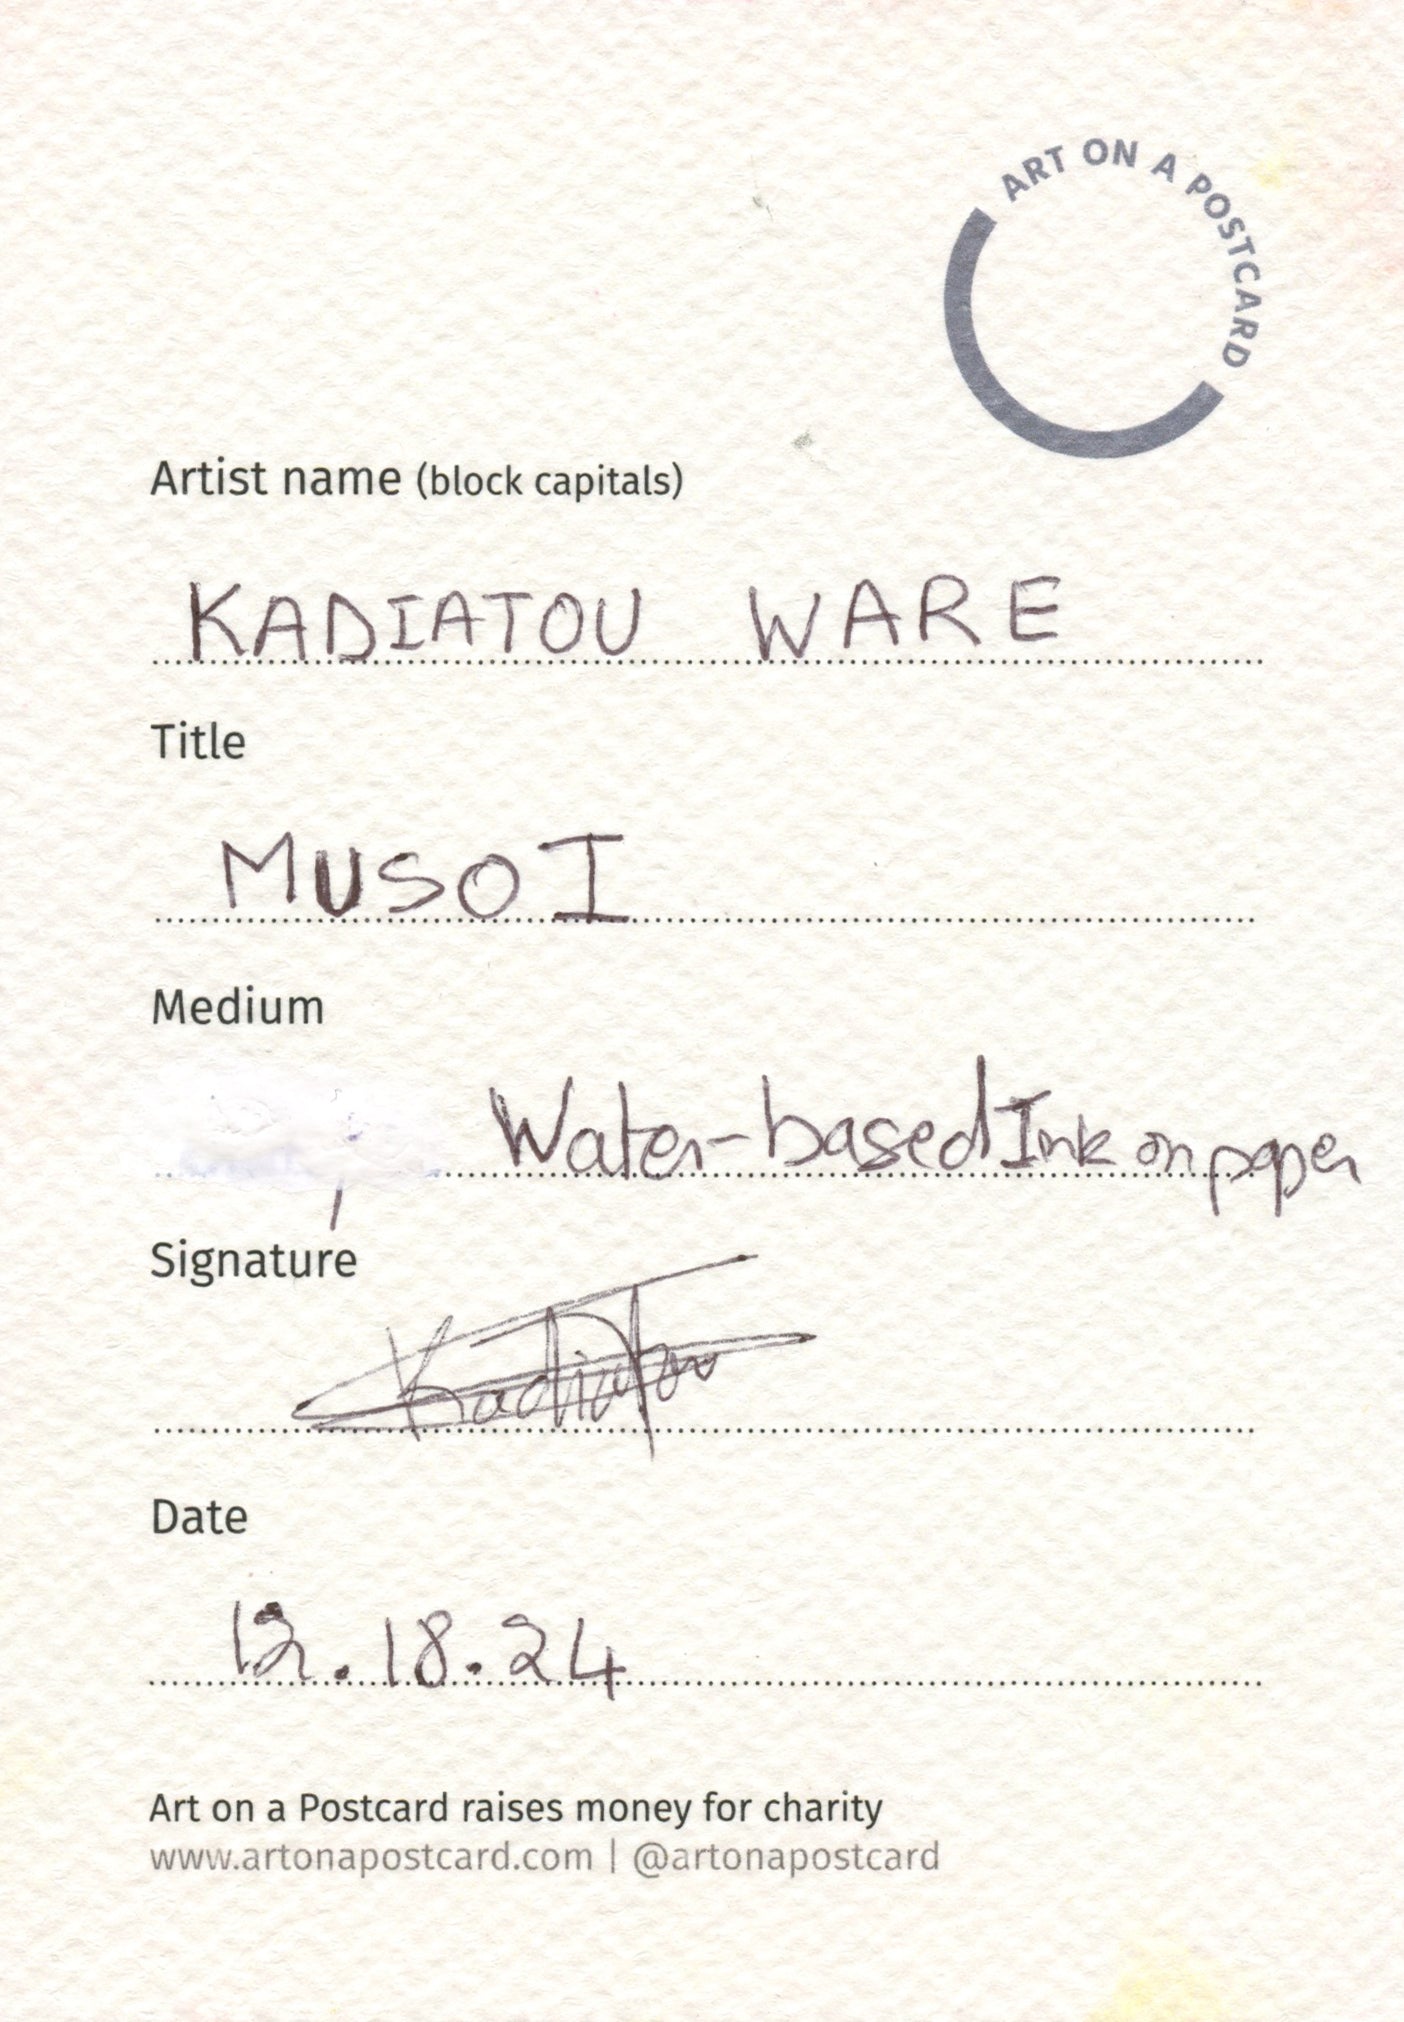 ART ON A POSTCARD
Artist name (block capitals)
KADIATOU WARE
Title
MUSO I
Medium
Water-based Ink on paper
Signature
Kadiatou
Date
12.18.24
Art on a Postcard raises money for charity
www.artonapostcard.com | @artonapostcard